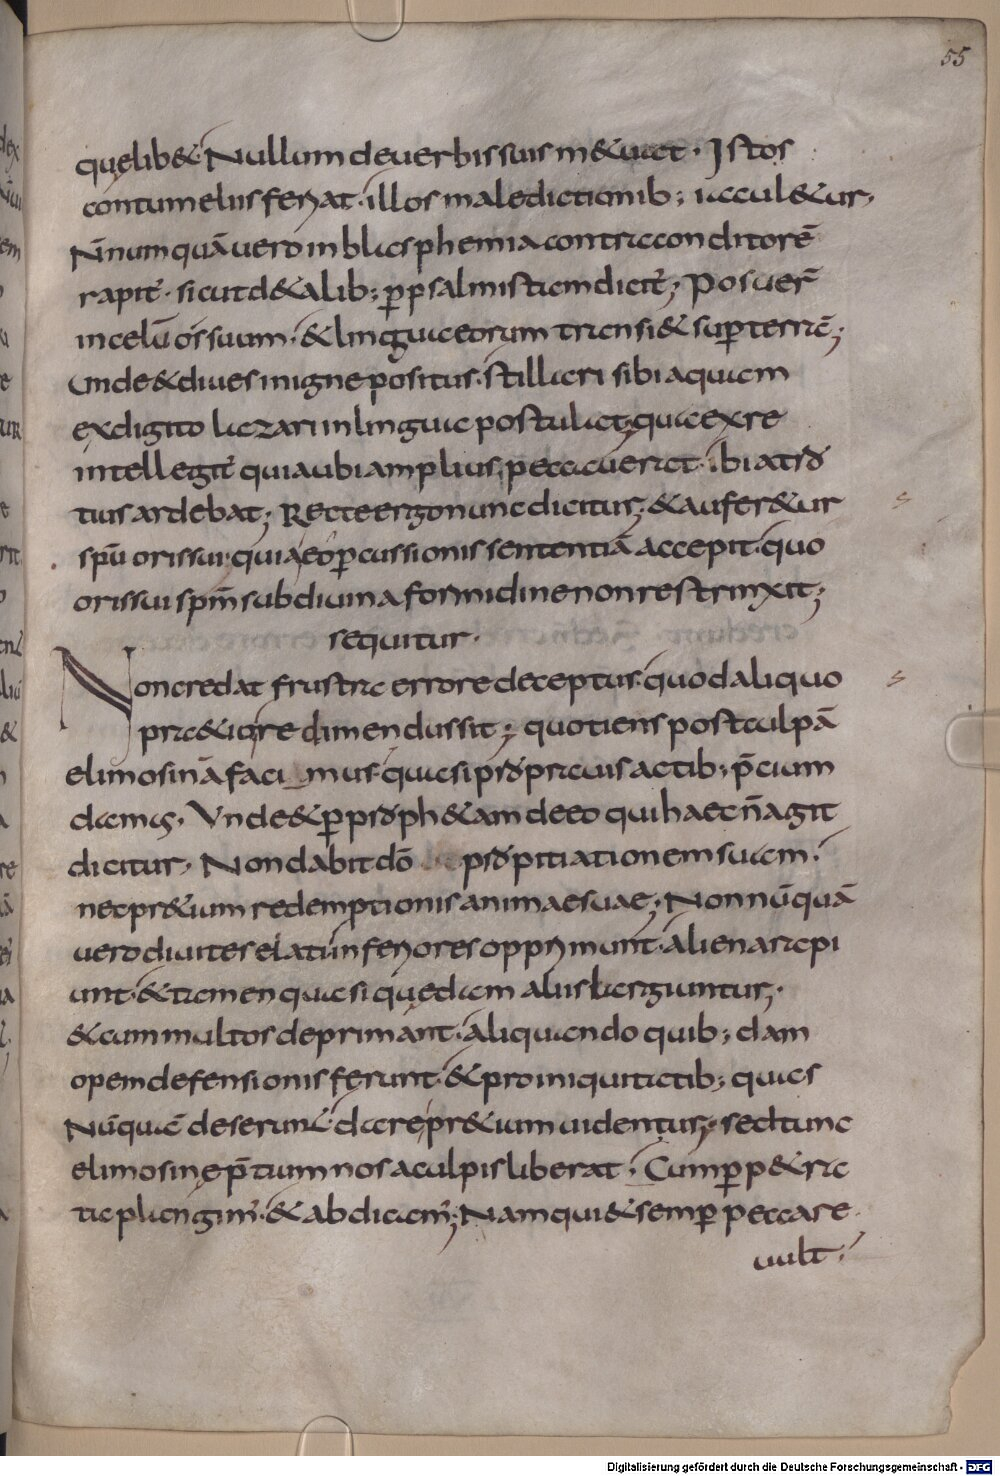 55
quęlib& Nullum deuerbis suis m&uat · Istos
contumeliis feriat · illos maledictionib; iacul&ur,
N̄numquā uero in blasphemia contra conditorē
rapit̄ · sicut d&alib; ꝑpsalmistam dicit̄; Posuer̄
in celū os suum · & lingua eorum transi& suꝑ terrā;
Unde & diues in igne positus · stillari sibi aquam
ex digito lazari in lingua postulat; qua ex re
intellegit̄ quia ubi amplius peccauerat · ibi atro
tius ardebat; Recte ergo nunc dicitur; & aufer&ur
spū oris sui · quia eo ꝑcussionis sententiā accepit · quo
oris sui spm̄ sub diuina formidine non restrinxit;
sequitur ·
Non credat frustra errore deceptus · quod aliquo
praetio redimendus sit; quotiens post culpā
elimosinā facimus · quasi pro prauis actib; p̄cium
damus, Vnde & ꝑ proph&am de eo qui haec n̄ agit
dicitur, Non dabit dō propitiationem suam ·
nec pr&ium redemptionis animae suae; Non nūquā
uero diuites elati inferiores opprimunt · aliena rapi
unt · & tamen quasi quędam aliis largiuntur; ·
& cum multos deprimant · aliquando quib; dam
opem defensionis ferunt · & pro iniquitatib; quas
Nūquā deserunt dare pr&ium uidentur; sed tunc
elimosinę p̄tium nos a culpis liberat · Cum ꝑp&ra
ta plangim̄ · & abdicam̄; Nam qui & semꝑ peccare
uult ·
Digitalisierung gefördert durch die Deutsche Forschungsgemeinschaft - DFG